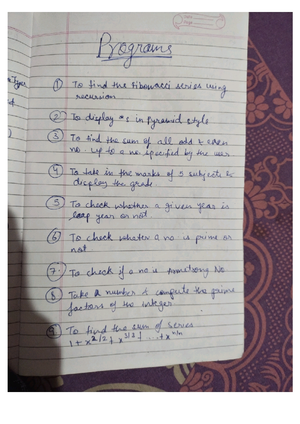 Programs
① To find the fibonacci series using
recursion
② To display *s in pyramid style
③ To find the sum of all odd & even
no. up to a no specified by the user
④ To take in the marks of 5 subjects &
display the grade
⑤ To check whether a given year is
leap year or not
⑥ To check whater a no is prime or
not
⑦ To check if a no is Armstrong No
⑧ Take a number & compute the prime
factors of the integer
⑨ To find the sum of series
1 + x^2/2 + x^3/3 + ... + x^n/n